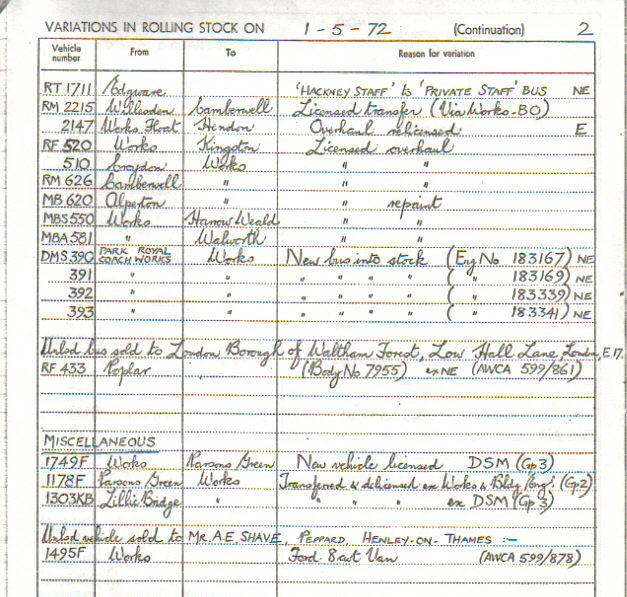 VARIATIONS IN ROLLING STOCK ON 1 - 5 - 72 (Continuation) 2
Vehicle number From To Reason for variation
RT 1711 Edgware 'HACKNEY STAFF' to 'PRIVATE STAFF' BUS NE
RM 2215 Willesden Camberwell Licensed transfer (Via Works-BO)
2147 Works Float Hendon Overhaul relicensed E
RF 520 Works Kingston Licensed overhaul
510 Croydon Works " "
RM 626 Camberwell " " "
MB 620 Alperton " " repaint
MBS 550 Works Harrow Weald " "
MBA 581 " Walworth " "
DMS 390 PARK ROYAL COACH WORKS Works New bus into stock (Eng No 183167) NE
391 " " " " " " ( " " 183169) NE
392 " " " " " " ( " " 183339) NE
393 " " " " " " ( " " 183341) NE
Unlsd bus sold to London Borough of Waltham Forest, Low Hall Lane, London, E.17.
RF 433 Poplar (Body No 7955) ex NE (AWCA 599/861)
MISCELLANEOUS
1749F Works Parsons Green New vehicle licensed DSM (Gp 3)
1178F Parsons Green Works Transferred & delicensed ex Works & Bldg Eng. (Gp 2)
1303KB Lillie Bridge " " " " ex DSM (Gp 3)
Unlsd vehicle sold to MR. A.E. SHAVE, PEPPARD, HENLEY-ON-THAMES :-
1495F Works Ford 8 cwt Van (AWCA 599/878)